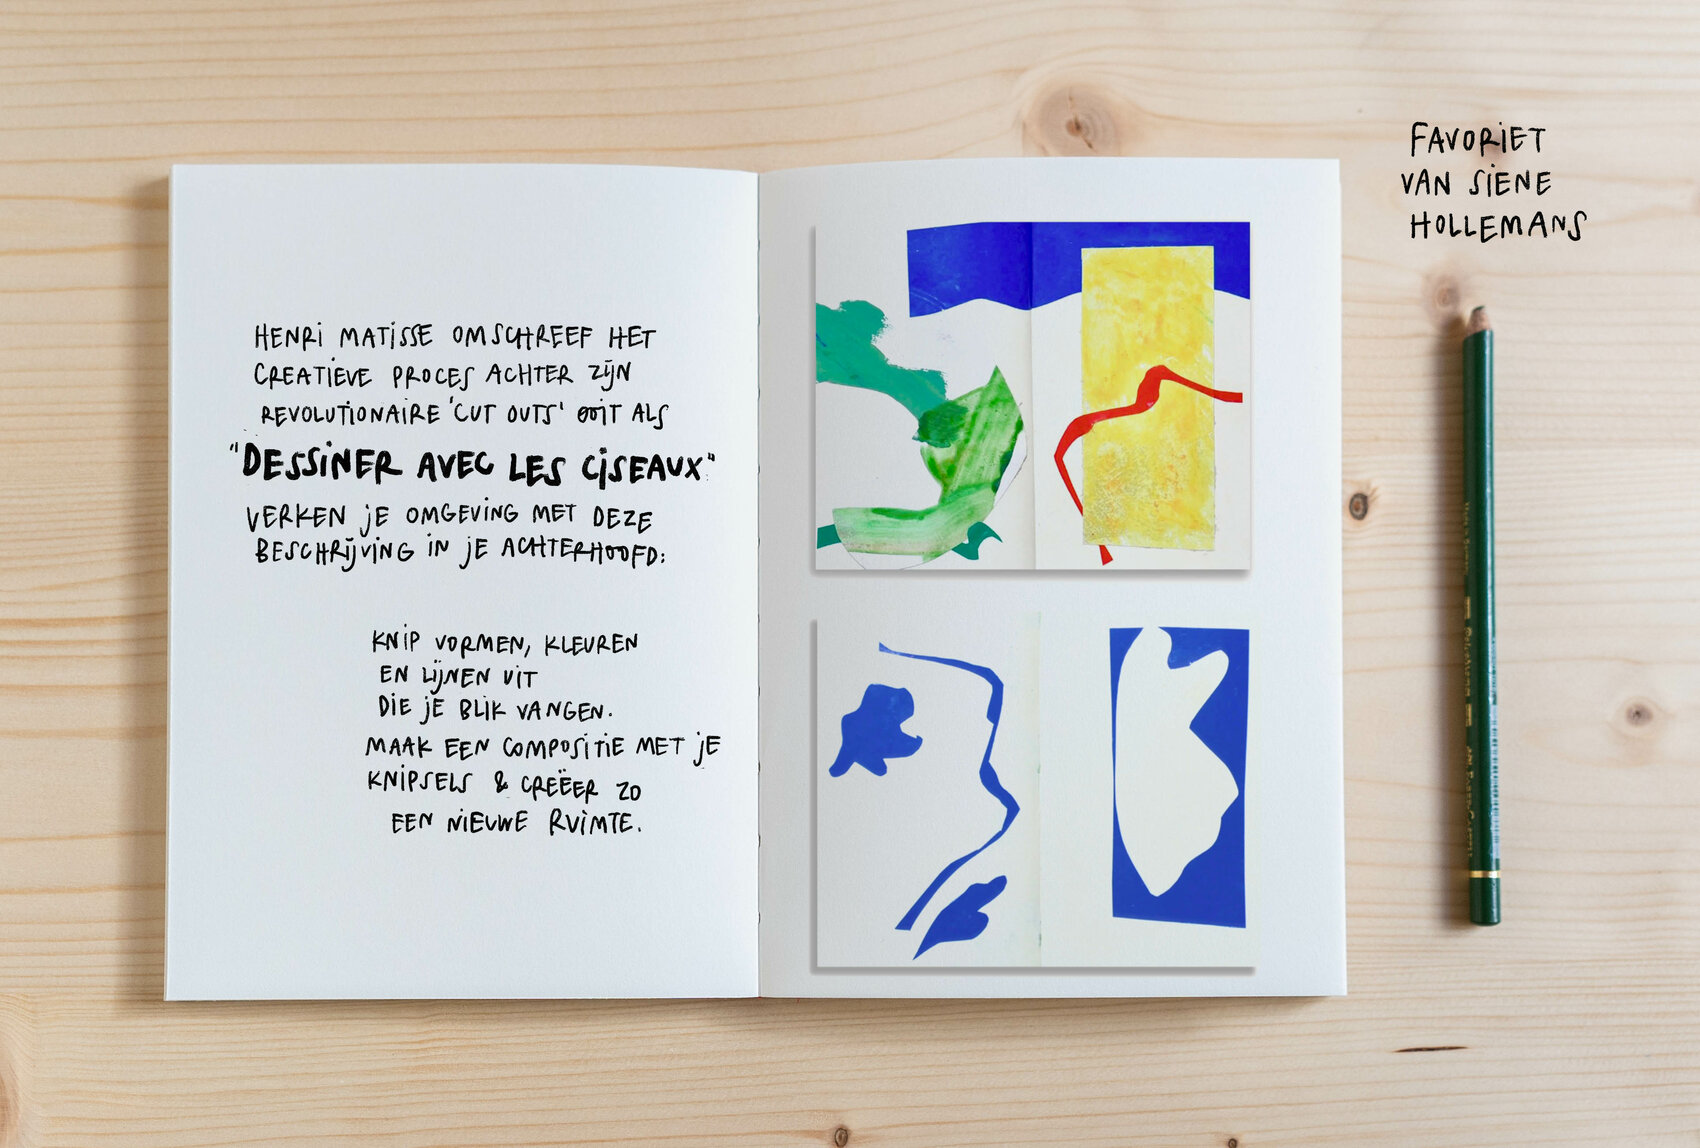 HENRI MATISSE OMSCHREEF HET
CREATIEVE PROCES ACHTER ZIJN
REVOLUTIONAIRE 'CUT OUTS' OOIT ALS
"DESSINER AVEC LES CISEAUX"
VERKEN JE OMGEVING MET DEZE
BESCHRIJVING IN JE ACHTERHOOFD:
KNIP VORMEN, KLEUREN
EN LIJNEN UIT
DIE JE BLIK VANGEN.
MAAK EEN COMPOSITIE MET JE
KNIPSELS & CREËER ZO
EEN NIEUWE RUIMTE.
FAVORIET
VAN SIENE
HOLLEMANS